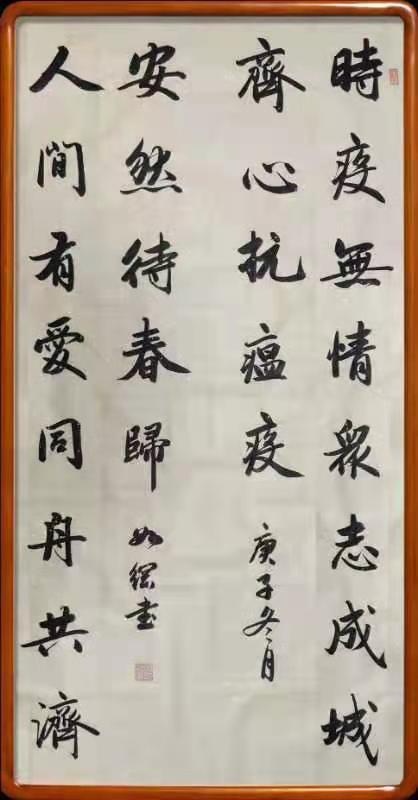 時疫無情衆志成城
齊心抗瘟疫
庚子冬月
人間有愛同舟共濟
安然待春歸
如書